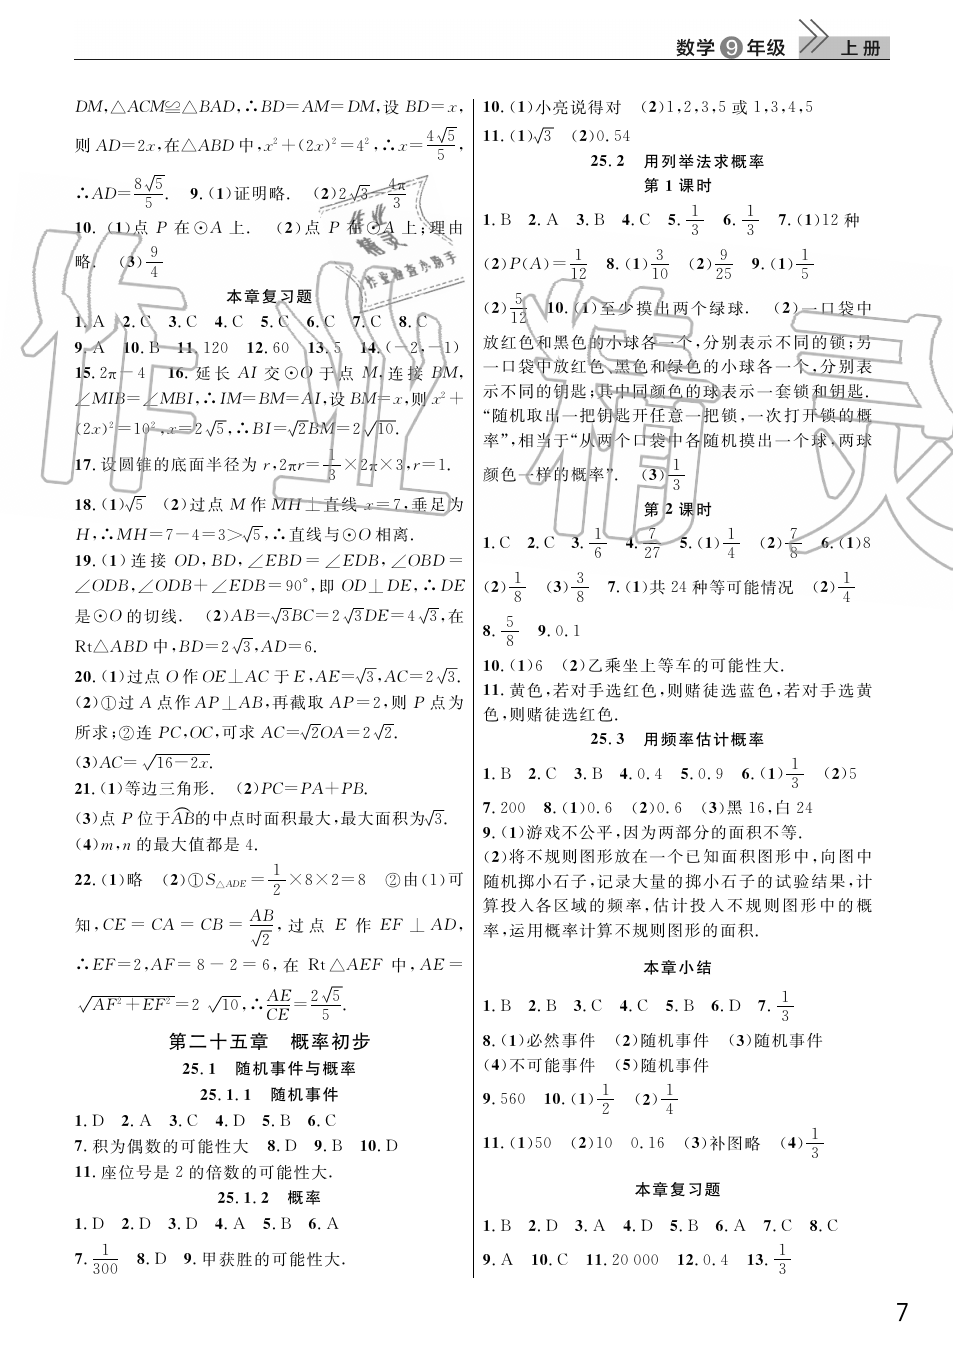 数学9年级 上册
DM,△ACM≌△BAD,∴BD=AM=DM,设 BD=x,
则 AD=2x,在△ABD 中,x²+(2x)²=4²,∴x=4√5/5,
∴AD=8√5/5. 9.(1)证明略. (2)2√3-4π/3
10.(1)点 P 在⊙A 上. (2)点 P 在⊙A 上;理由
略. (3)9/4
本章复习题
1.A 2.C 3.C 4.C 5.C 6.C 7.C 8.C
9.A 10.B 11.120 12.60 13.5 14.(-2,-1)
15.2π-4 16.延长 AI 交⊙O 于点 M,连接 BM,
∠MIB=∠MBI,∴IM=BM=AI,设 BM=x,则 x²+
(2x)²=10²,x=2√5,∴BI=√2BM=2√10.
17.设圆锥的底面半径为 r,2πr=1/3×2π×3,r=1.
18.(1)√5 (2)过点 M 作 MH⊥直线 x=7,垂足为
H,∴MH=7-4=3>√5,∴直线与⊙O 相离.
19.(1)连接 OD,BD,∠EBD=∠EDB,∠OBD=
∠ODB,∠ODB+∠EDB=90°,即 OD⊥DE,∴DE
是⊙O 的切线. (2)AB=√3BC=2√3DE=4√3,在
Rt△ABD 中,BD=2√3,AD=6.
20.(1)过点 O 作 OE⊥AC 于 E,AE=√3,AC=2√3.
(2)①过 A 点作 AP⊥AB,再截取 AP=2,则 P 点为
所求;②连 PC,OC,可求 AC=√2OA=2√2.
(3)AC=√(16-2x).
21.(1)等边三角形. (2)PC=PA+PB.
(3)点 P 位于⌒AB的中点时面积最大,最大面积为√3.
(4)m,n 的最大值都是 4.
22.(1)略 (2)①S△ADE=1/2×8×2=8 ②由(1)可
知,CE=CA=CB=AB/√2,过点 E 作 EF⊥AD,
∴EF=2,AF=8-2=6,在 Rt△AEF 中,AE=
√(AF²+EF²)=2√10,∴AE/CE=2√5/5.
第二十五章 概率初步
25.1 随机事件与概率
25.1.1 随机事件
1.D 2.A 3.C 4.D 5.B 6.C
7.积为偶数的可能性大 8.D 9.B 10.D
11.座位号是 2 的倍数的可能性大.
25.1.2 概率
1.D 2.D 3.D 4.A 5.B 6.A
7.1/300 8.D 9.甲获胜的可能性大.
10.(1)小亮说得对 (2)1,2,3,5 或 1,3,4,5
11.(1)√3 (2)0.54
25.2 用列举法求概率
第 1 课时
1.B 2.A 3.B 4.C 5.1/3 6.1/3 7.(1)12 种
(2)P(A)=1/12 8.(1)3/10 (2)9/25 9.(1)1/5
(2)5/12 10.(1)至少摸出两个绿球. (2)一口袋中
放红色和黑色的小球各一个,分别表示不同的锁;另
一口袋中放红色、黑色和绿色的小球各一个,分别表
示不同的钥匙;其中同颜色的球表示一套锁和钥匙.
“随机取出一把钥匙开任意一把锁,一次打开锁的概
率”,相当于“从两个口袋中各随机摸出一个球,两球
颜色一样的概率”. (3)1/3
第 2 课时
1.C 2.C 3.1/6 4.7/27 5.(1)1/4 (2)7/8 6.(1)8
(2)1/8 (3)3/8 7.(1)共 24 种等可能情况 (2)1/4
8.5/8 9.0.1
10.(1)6 (2)乙乘坐上等车的可能性大.
11.黄色,若对手选红色,则赌徒选蓝色,若对手选黄
色,则赌徒选红色.
25.3 用频率估计概率
1.B 2.C 3.B 4.0.4 5.0.9 6.(1)1/3 (2)5
7.200 8.(1)0.6 (2)0.6 (3)黑 16,白 24
9.(1)游戏不公平,因为两部分的面积不等.
(2)将不规则图形放在一个已知面积图形中,向图中
随机掷小石子,记录大量的掷小石子的试验结果,计
算投入各区域的频率,估计投入不规则图形中的概
率,运用概率计算不规则图形的面积.
本章小结
1.B 2.B 3.C 4.C 5.B 6.D 7.1/3
8.(1)必然事件 (2)随机事件 (3)随机事件
(4)不可能事件 (5)随机事件
9.560 10.(1)1/2 (2)1/4
11.(1)50 (2)10 0.16 (3)补图略 (4)1/3
本章复习题
1.B 2.D 3.A 4.D 5.B 6.A 7.C 8.C
9.A 10.C 11.20 000 12.0.4 13.1/3
7
作业精灵
作业精灵
作业检查小助手